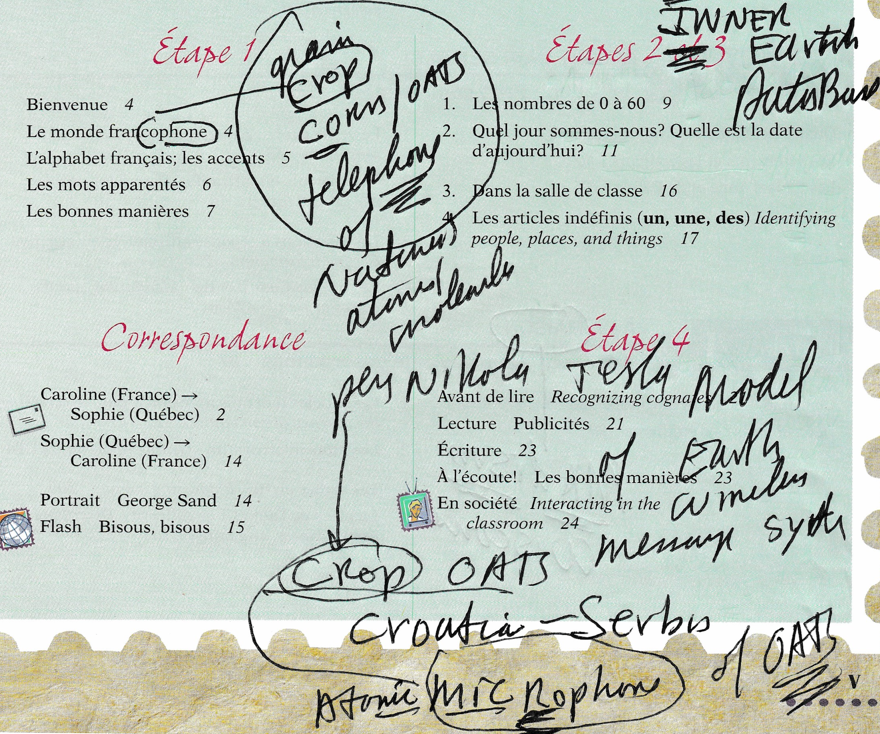 INNER
Étape 1
Étapes 2 et 3
Earth
grain
Crop
corns/OATS
telephone
of
Natures
atomes/
molecules
Bienvenue 4
Le monde francophone 4
L'alphabet français; les accents 5
Les mots apparentés 6
Les bonnes manières 7
1. Les nombres de 0 à 60 9
2. Quel jour sommes-nous? Quelle est la date
d'aujourd'hui? 11
3. Dans la salle de classe 16
4. Les articles indéfinis (un, une, des) Identifying
people, places, and things 17
Correspondance
Caroline (France) →
Sophie (Québec) 2
Sophie (Québec) →
Caroline (France) 14
Portrait George Sand 14
Flash Bisous, bisous 15
Étape 4
per Nikola Tesla Model
of Earth
message
Avant de lire Recognizing cognates
Lecture Publicités 21
Écriture 23
À l'écoute! Les bonnes manières 23
En société Interacting in the
classroom 24
Crop OATS
Croatia – Serbis
Atomic MICRophone of OATS
v